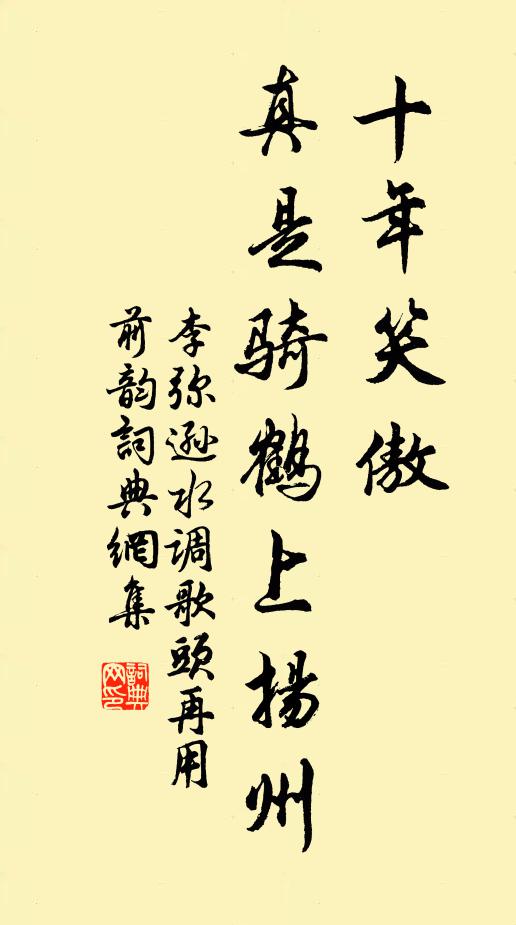 十年笑傲
真是骑鹤上扬州
李弥逊水调歌頭再用
前韵詞典網集
詞典网印